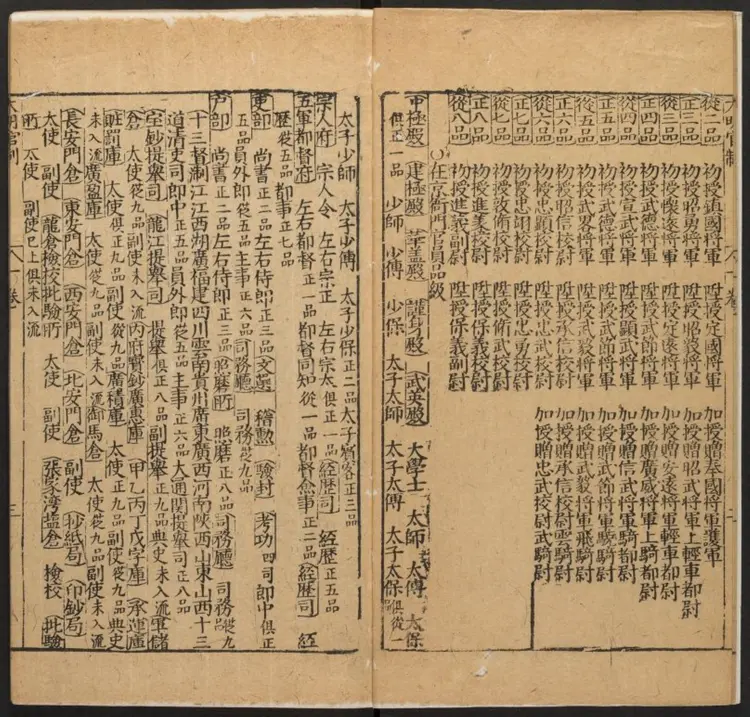 大明官制 卷一 二
從二品 初授鎮國將軍 陞授定國將軍 加授贈奉國將軍護軍
正三品 初授昭勇將軍 陞授昭毅將軍 加授贈昭武將軍上輕車都尉
從三品 初授懷遠將軍 陞授定遠將軍 加授贈安遠將軍輕車都尉
正四品 初授武德將軍 陞授武節將軍 加授贈廣威將軍上騎都尉
從四品 初授宣武將軍 陞授顯武將軍 加授贈信武將軍騎都尉
正五品 初授武德將軍 陞授武節將軍 加授贈武節將軍驍騎尉
從五品 初授武畧將軍 陞授武毅將軍 加授贈武毅將軍飛騎尉
正六品 初授昭信校尉 陞授承信校尉 加授贈承信校尉雲騎尉
從六品 初授忠顯校尉 陞授忠武校尉 加授贈忠武校尉武騎尉
正七品 初授忠翊校尉 陞授忠勇校尉
從七品 初授 校尉 陞授 武校尉
正八品 初授進義校尉 陞授保義校尉
從八品 初授進義副尉 陞授保義副尉
○在京衙門官員品級
中極殿 建極殿 華蓋殿 謹身殿 武英殿 大學士 太師 太傅 太保
俱正一品 少師 少傅 少保 太子太師 太子太傅 太子太保 俱從一
太子少師 太子少傅 太子少保正二品太子賓客正三品
宗人府 宗人令 左右宗正 左右宗人俱正一品經歷司 經歷正五品
五軍都督府 左右都督正一品都督同知從一品都督僉事正二品經歷司 經
歷從五品都事正七品
吏部 尚書正二品左右侍郎正三品文選 稽勳 驗封 考功四司郎中俱正
五品員外郎從五品主事正六品司務廳 司務從九品
戶部 尚書正二品左右侍郎正三品照磨所 照磨正八品司務廳 司務從九品
十三督制江江西湖廣福建四川雲南貴州廣東廣西河南陝西山東山西十三
道清吏司郎中正五品員外郎從五品主事正六品大通關提舉司正八品
寶鈔提舉司 龍江提舉司 提舉俱正八品副提舉正九品典史未入流軍儲
倉 大使從九品副使未入流內府寶鈔廣惠庫 甲乙丙丁戊字庫 承運庫
贓罰庫 大使俱正九品副使從九品廣積庫 大使正九品副使從九品典史
未入流廣盈庫 大使從九品副使未入流御馬倉 大使從九品副使未入流
長安門倉 東安門倉 西安門倉 北安門倉 副使 抄紙局 印鈔局
大使 副使 龍倉檢校批驗所 大使 副使 張家灣鹽倉 檢校 批驗
所 大使 副使巳上俱未入流
大明官制 卷一 三